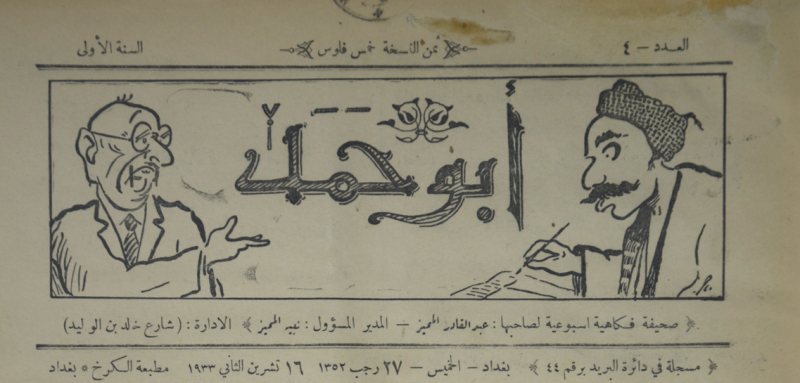 العدد - ٤ ثمن النسخة خمس فلوس السنة الأولى
أبو حمد
صحيفة فكاهية اسبوعية لصاحبها : عبد القادر المميز - المدير المسؤول : نهير المميز الادارة : ( شارع خالد بن الوليد )
مسجلة في دائرة البريد برقم ٤٤ بغداد - الخميس - ٢٧ رجب ١٣٥٢ ١٦ تشرين الثاني ١٩٣٣ مطبعة الكرخ * بغداد